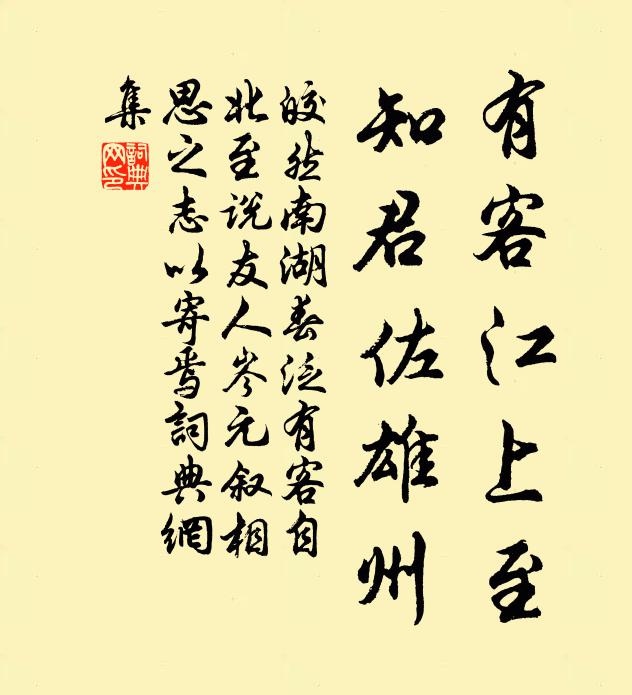 有客江上至
知君佐雄州
皎然南湖春泛有客自
北至说友人岑元叙相
思之志以寄焉詞典網
集
詞典網印